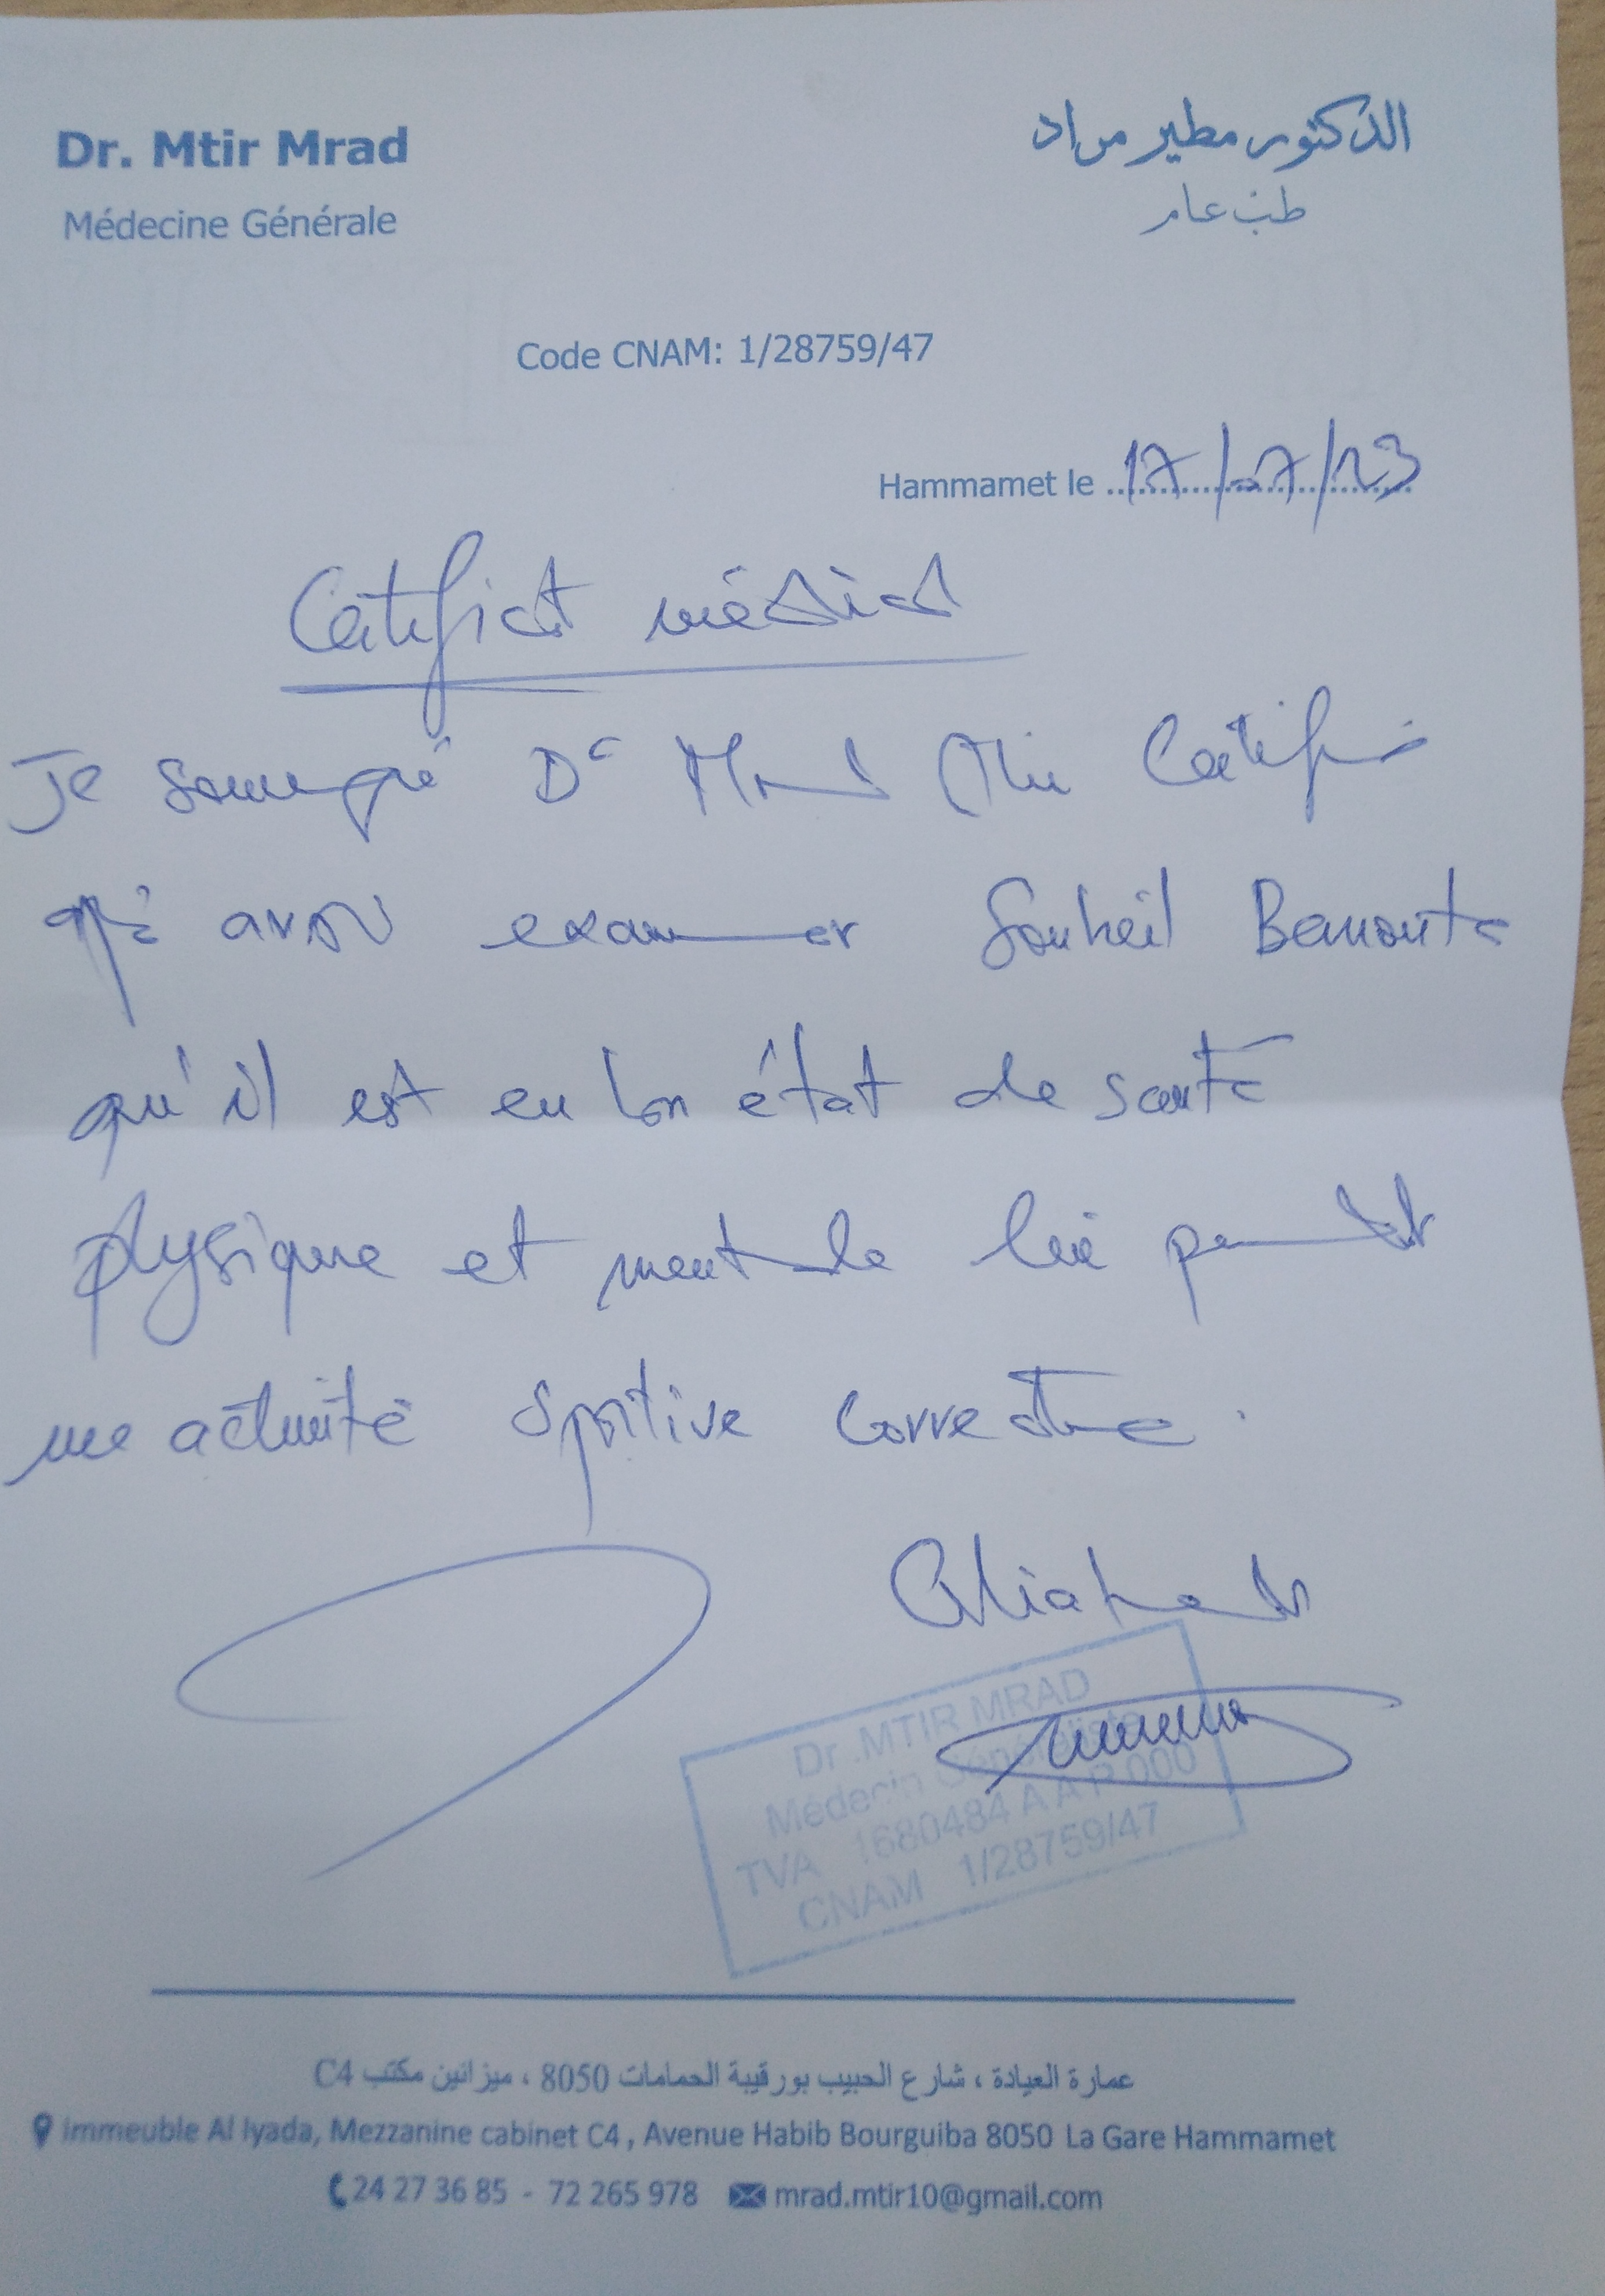 Dr. Mtir Mrad
الدكتور مطير مراد
Médecine Générale
طب عام
Code CNAM: 1/28759/47
Hammamet le 17/07/23
Certificat médical
Je soussigné Dr Mrad Mtir Certifie
avoir examiner Souheil
qu'il est en bon état de santé
physique et mentale lui permet
une activité sportive correcte.
Dr .MTIR MRAD
Médecin Généraliste
TVA 1680484 A A P 000
CNAM 1/28759/47
عمارة العيادة ، شارع الحبيب بورقيبة الحمامات 8050 ، ميزانين مكتب C4
Immeuble Al Iyada, Mezzanine cabinet C4 , Avenue Habib Bourguiba 8050 La Gare Hammamet
24 27 36 85 - 72 265 978 mrad.mtir10@gmail.com